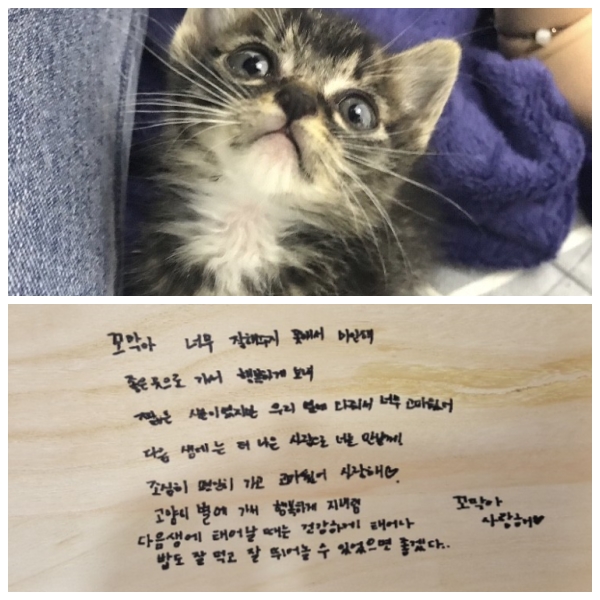 꼬막아 너무 잘해주지 못해서 미안해
좋은 곳으로 가서 행복하게 보내
짧은 시간이었지만 우리 옆에 다줘서 너무 고마웠어
다음 생에는 더 나은 시작으로 너를 만날께!
조심히 편안히 가고 고마웠어 사랑해♡.
고양이 별에 가서 행복하게 지내렴
다음생에 태어날 때는 건강하게 태어나
밥도 잘 먹고 잘 뛰어놀 수 있었으면 좋겠다..
꼬막아
사랑해♥